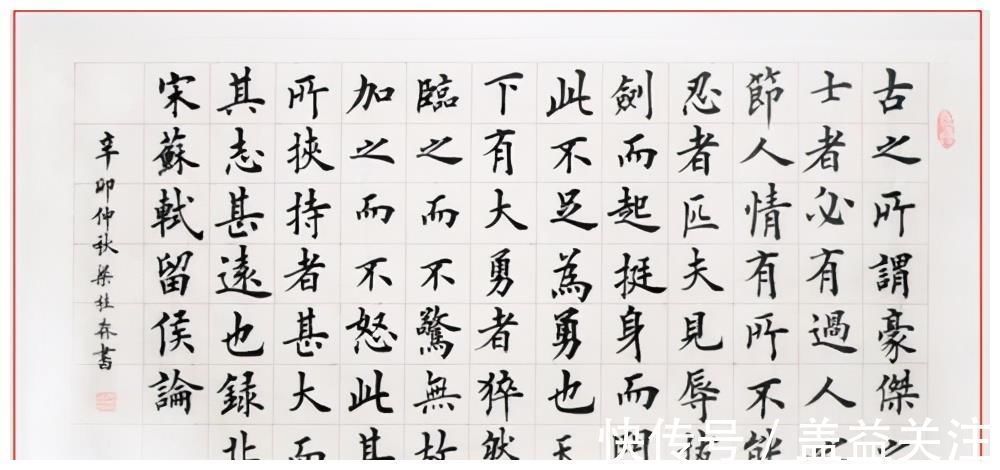 古之所謂豪傑之
士者必有過人之
節人情有所不能
忍者匹夫見辱拔
劍而起挺身而鬥
此不足為勇也天
下有大勇者猝然
臨之而不驚無故
加之而不怒此其
所挾持者甚大而
其志甚遠也録北
宋蘇軾留侯論
辛卯仲秋梁桂書
快传号 / 盖益关注